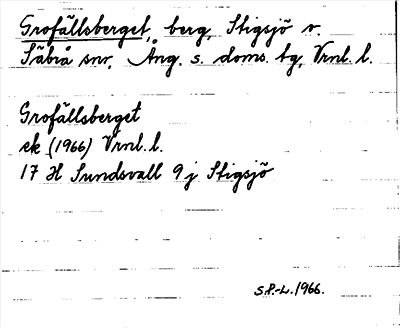 Grofällsberget, berg, Stigsjö s.
Säbrå snv, Ång. s. doms. tg, Vrnl. l.
Grofällsberget
ek (1966) Vrnl. l.
17 H Sundsvall 9 j Stigsjö
S.P.-L. 1966.